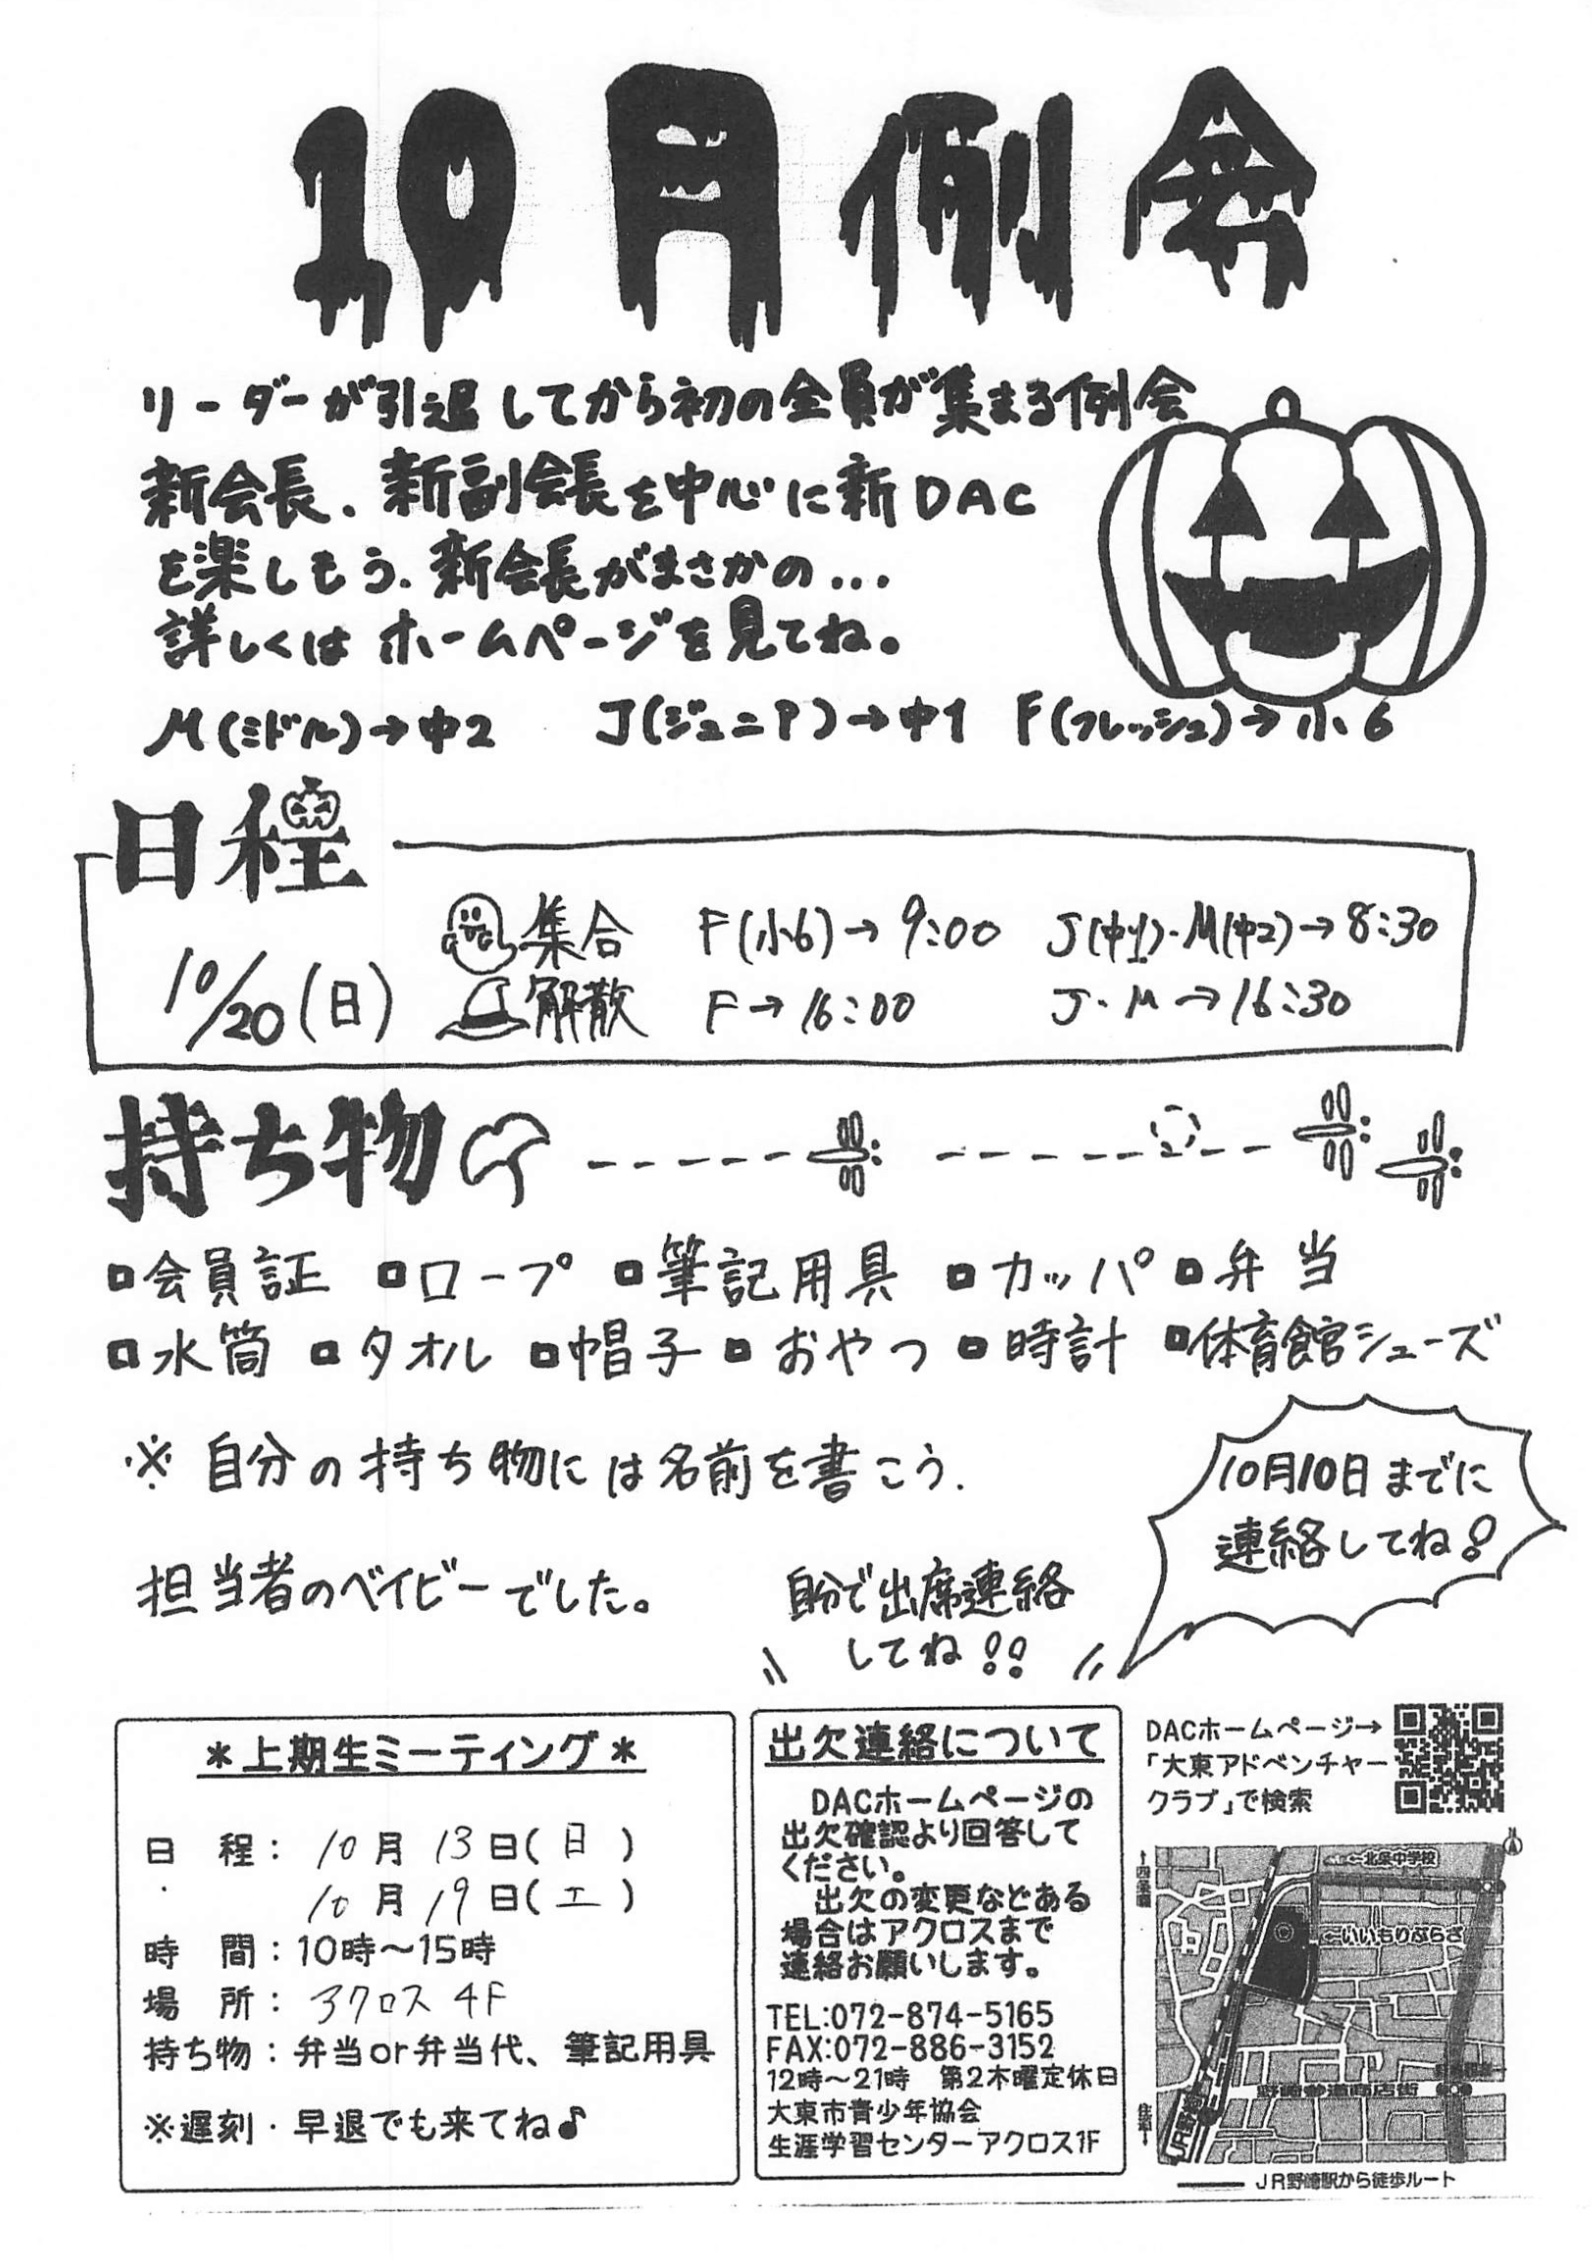 10月例会
リーダーが引退してから初の全員が集まる例会
新会長、新副会長を中心に新DAC
を楽しもう。新会長がまさかの...
詳しくは ホームページを見てね。
M(ミドル)→中2 J(ジュニア)→中1 F(フレッシュ)→小6
日程
10/20(日)
集合 F(小6)→9:00 J(中1)・M(中2)→8:30
解散 F→16:00 J・M→16:30
持ち物
□会員証 □ロープ □筆記用具 □カッパ □弁当
□水筒 □タオル □帽子 □おやつ □時計 □体育館シューズ
※自分の持ち物には名前を書こう.
10月10日までに
連絡してね!
担当者のベイビーでした。
自分で出席連絡
してね!!
*上期生ミーティング*
日 程: 10月13日(日)
10月19日(土)
時 間:10時～15時
場 所: アクロス 4F
持ち物:弁当or弁当代、筆記用具
※遅刻・早退でも来てね♪
出欠連絡について
DACホームページの
出欠確認より回答して
ください。
出欠の変更などある
場合はアクロスまで
連絡お願いします。
TEL:072-874-5165
FAX:072-886-3152
12時～21時 第2木曜定休日
大東市青少年協会
生涯学習センターアクロス1F
DACホームページ→
「大東アドベンチャー
クラブ」で検索
←北条中学校
←いいもりぷらざ
野崎参道商店街
JR野崎駅
JR野崎駅から徒歩ルート